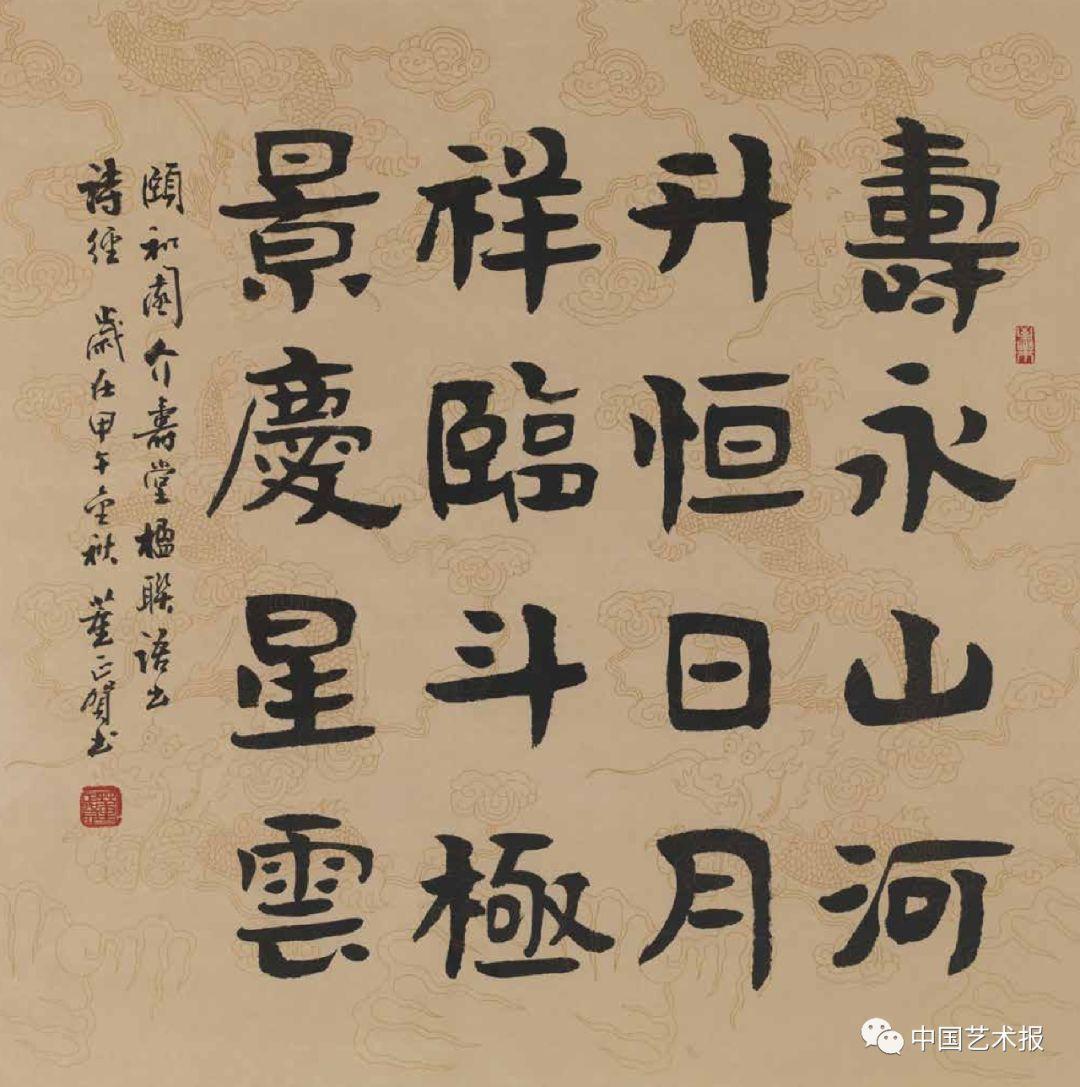 壽永山河
升恒日月
祥臨斗極
景慶星雲
頤和園介壽堂楹聯語出
詩經 歲在甲午金秋 董正賀書
中国艺术报